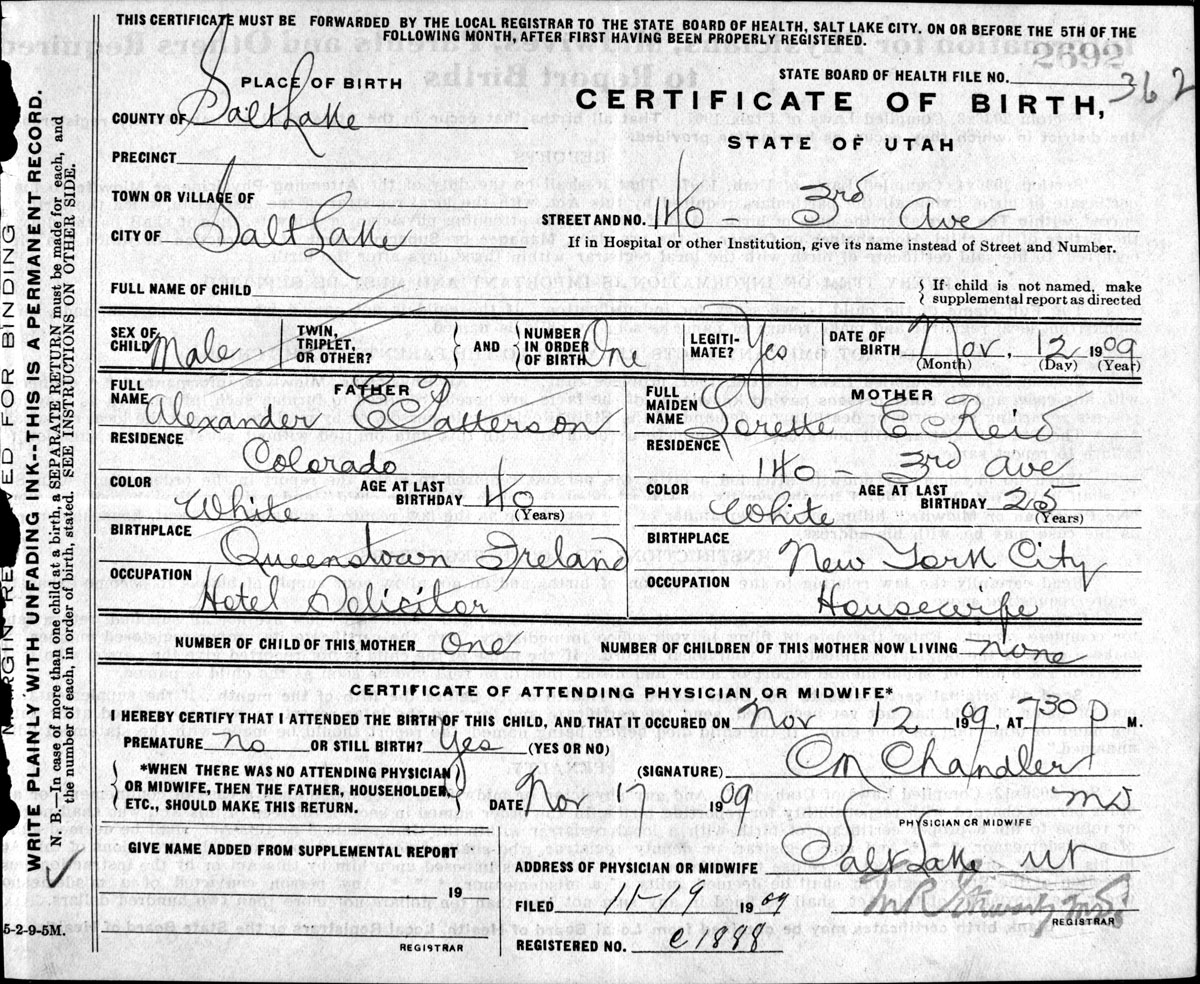 THIS CERTIFICATE MUST BE FORWARDED BY THE LOCAL REGISTRAR TO THE STATE BOARD OF HEALTH, SALT LAKE CITY. ON OR BEFORE THE 5TH OF THE
FOLLOWING MONTH, AFTER FIRST HAVING BEEN PROPERLY REGISTERED.
2692
PLACE OF BIRTH
STATE BOARD OF HEALTH FILE NO. 362
CERTIFICATE OF BIRTH,
STATE OF UTAH
COUNTY OF Salt Lake
PRECINCT
TOWN OR VILLAGE OF
STREET AND NO. 140 - 3rd Ave
CITY OF Salt Lake
If in Hospital or other Institution, give its name instead of Street and Number.
FULL NAME OF CHILD
If child is not named, make
supplemental report as directed
SEX OF
CHILD Male
TWIN,
TRIPLET,
OR OTHER?
AND
NUMBER
IN ORDER
OF BIRTH One
LEGITI-
MATE? Yes
DATE OF
BIRTH Nov. 12 1909
(Month) (Day) (Year)
FULL
NAME
FATHER
Alexander E Patterson
RESIDENCE
Colorado
COLOR White
AGE AT LAST
BIRTHDAY 40
(Years)
BIRTHPLACE
Queenstown Ireland
OCCUPATION
Hotel Solicitor
FULL
MAIDEN
NAME
MOTHER
Lorette E Reid
RESIDENCE
140 - 3rd Ave
COLOR White
AGE AT LAST
BIRTHDAY 25
(Years)
BIRTHPLACE
New York City
OCCUPATION
Housewife
NUMBER OF CHILD OF THIS MOTHER One
NUMBER OF CHILDREN OF THIS MOTHER NOW LIVING none
CERTIFICATE OF ATTENDING PHYSICIAN OR MIDWIFE*
I HEREBY CERTIFY THAT I ATTENDED THE BIRTH OF THIS CHILD, AND THAT IT OCCURED ON Nov 12 1909, AT 730 P M.
PREMATURE no OR STILL BIRTH? Yes (YES OR NO)
*WHEN THERE WAS NO ATTENDING PHYSICIAN
OR MIDWIFE, THEN THE FATHER, HOUSEHOLDER,
ETC., SHOULD MAKE THIS RETURN.
(SIGNATURE) CM Chandler
MD
DATE Nov 17 1909
PHYSICIAN OR MIDWIFE
GIVE NAME ADDED FROM SUPPLEMENTAL REPORT
19
REGISTRAR
ADDRESS OF PHYSICIAN OR MIDWIFE Salt Lake Ut
FILED 11-19 1909
REGISTRAR
REGISTERED NO. e1888
MARGIN RESERVED FOR BINDING
WRITE PLAINLY WITH UNFADING INK--THIS IS A PERMANENT RECORD.
N. B.—In case of more than one child at a birth, a SEPARATE RETURN must be made for each, and
the number of each, in order of birth, stated. SEE INSTRUCTIONS ON OTHER SIDE.
5-2-9-5M.